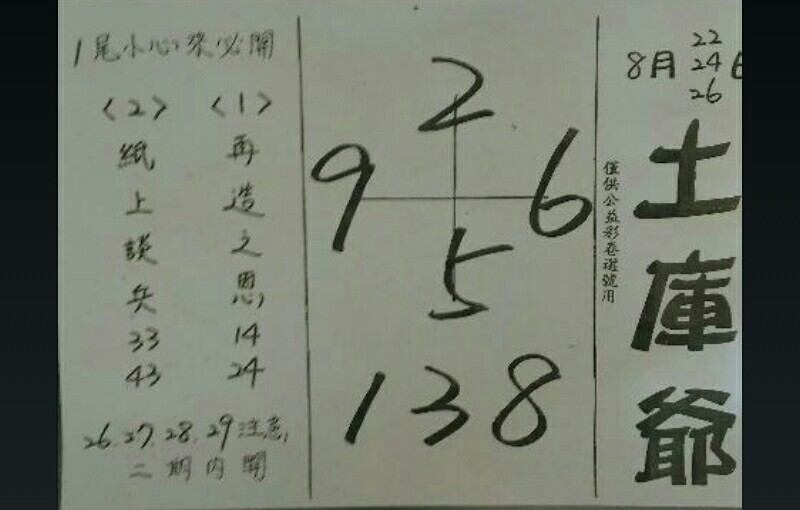 8月 22 24 26日
土庫爺
僅供公益彩卷選號用
2
9 6
5
1 3 8
1尾小心來必開
<1>
再造之恩
14
24
<2>
紙上談兵
33
43
26.27.28.29注意,
二期內開